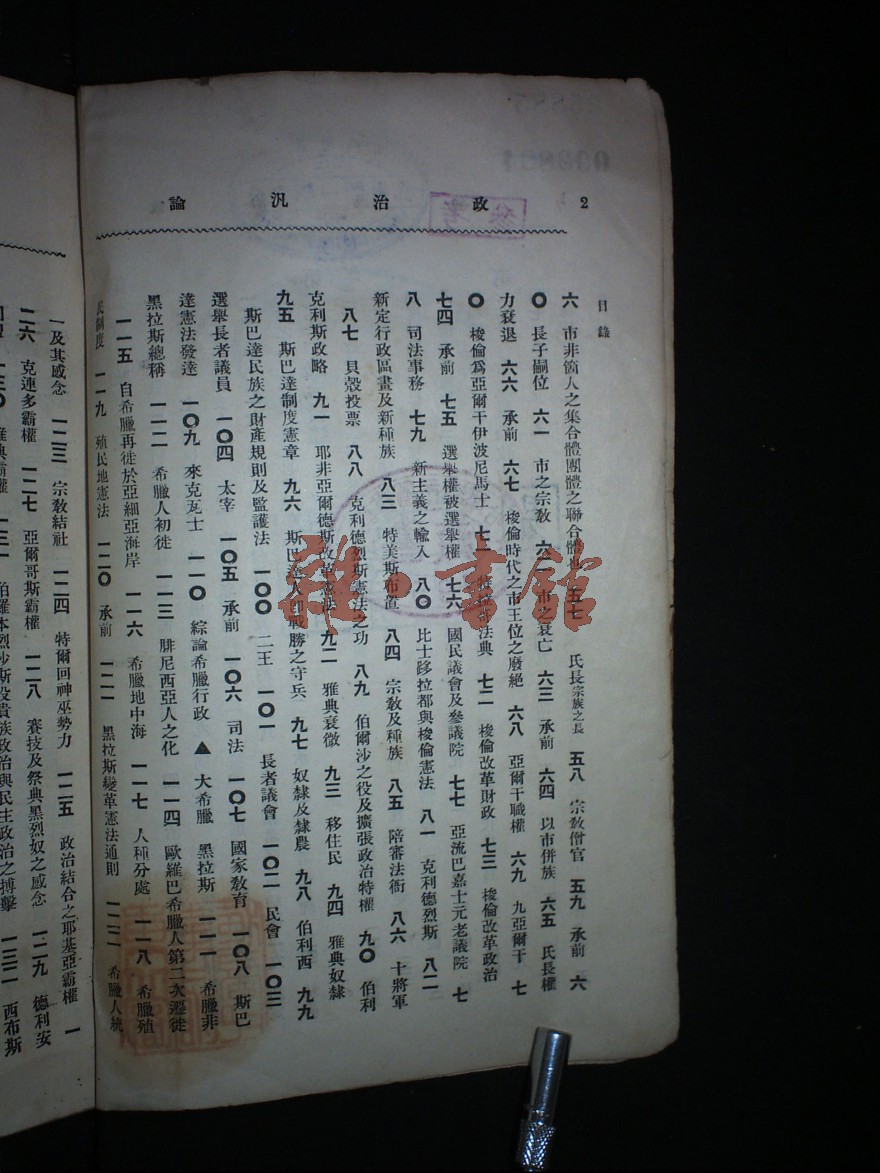 2 政治汎論
目錄
六 市非箇人之集合體團體之聯合體也 五七 氏長宗族之長 五八 宗敎僧官 五九 承前 六
〇 長子嗣位 六一 市之宗敎 六二 市之衰亡 六三 承前 六四 以市併族 六五 氏長權
力衰退 六六 承前 六七 梭倫時代之市王位之廢絕 六八 亞爾干職權 六九 九亞爾干 七
〇 梭倫爲亞爾干伊波尼馬士 七一 法典 七二 梭倫改革財政 七三 梭倫改革政治
七四 承前 七五 選舉權被選舉權 七六 國民議會及參議院 七七 亞流巴嘉士元老議院 七
八 司法事務 七九 新主義之輸入 八〇 比士移拉都與梭倫憲法 八一 克利德烈斯 八二
新定行政區畫及新種族 八三 特美斯布置 八四 宗敎及種族 八五 陪審法衙 八六 十將軍
八七 貝殼投票 八八 克利德烈斯憲法之功 八九 伯爾沙之役及擴張政治特權 九〇 伯利
克利斯政略 九一 耶非亞爾德斯改革憲法 九二 雅典衰微 九三 移住民 九四 雅典奴隸
九五 斯巴達制度憲章 九六 斯巴達人卽戰勝之守兵 九七 奴隸及隸農 九八 伯利西 九九
斯巴達民族之財產規則及監護法 一〇〇 二王 一〇一 長者議會 一〇二 民會 一〇三
選舉長者議員 一〇四 太宰 一〇五 承前 一〇六 司法 一〇七 國家敎育 一〇八 斯巴
達憲法發達 一〇九 來克瓦士 一一〇 綜論希臘行政 ▲ 大希臘 黑拉斯 一一一 希臘非
黑拉斯總稱 一一二 希臘人初徙 一一三 腓尼西亞人之化 一一四 歐羅巴希臘人第二次遷徙
一一五 自希臘再徙於亞細亞海岸 一一六 希臘地中海 一一七 人種分處 一一八 希臘殖
民制度 一一九 殖民地憲法 一二〇 承前 一二一 黑拉斯變革憲法通則 一二二 希臘人統
一及其感念 一二三 宗敎結社 一二四 特爾回神巫勢力 一二五 政治結合之耶基亞霸權 一
二六 克連多霸權 一二七 亞爾哥斯霸權 一二八 賽技及祭典黑烈奴之感念 一二九 德利安
一三〇 雅典霸權 一三一 伯羅本烈沙斯役貴族政治與民主政治之搏擊 一三二 西布斯
雜·書館